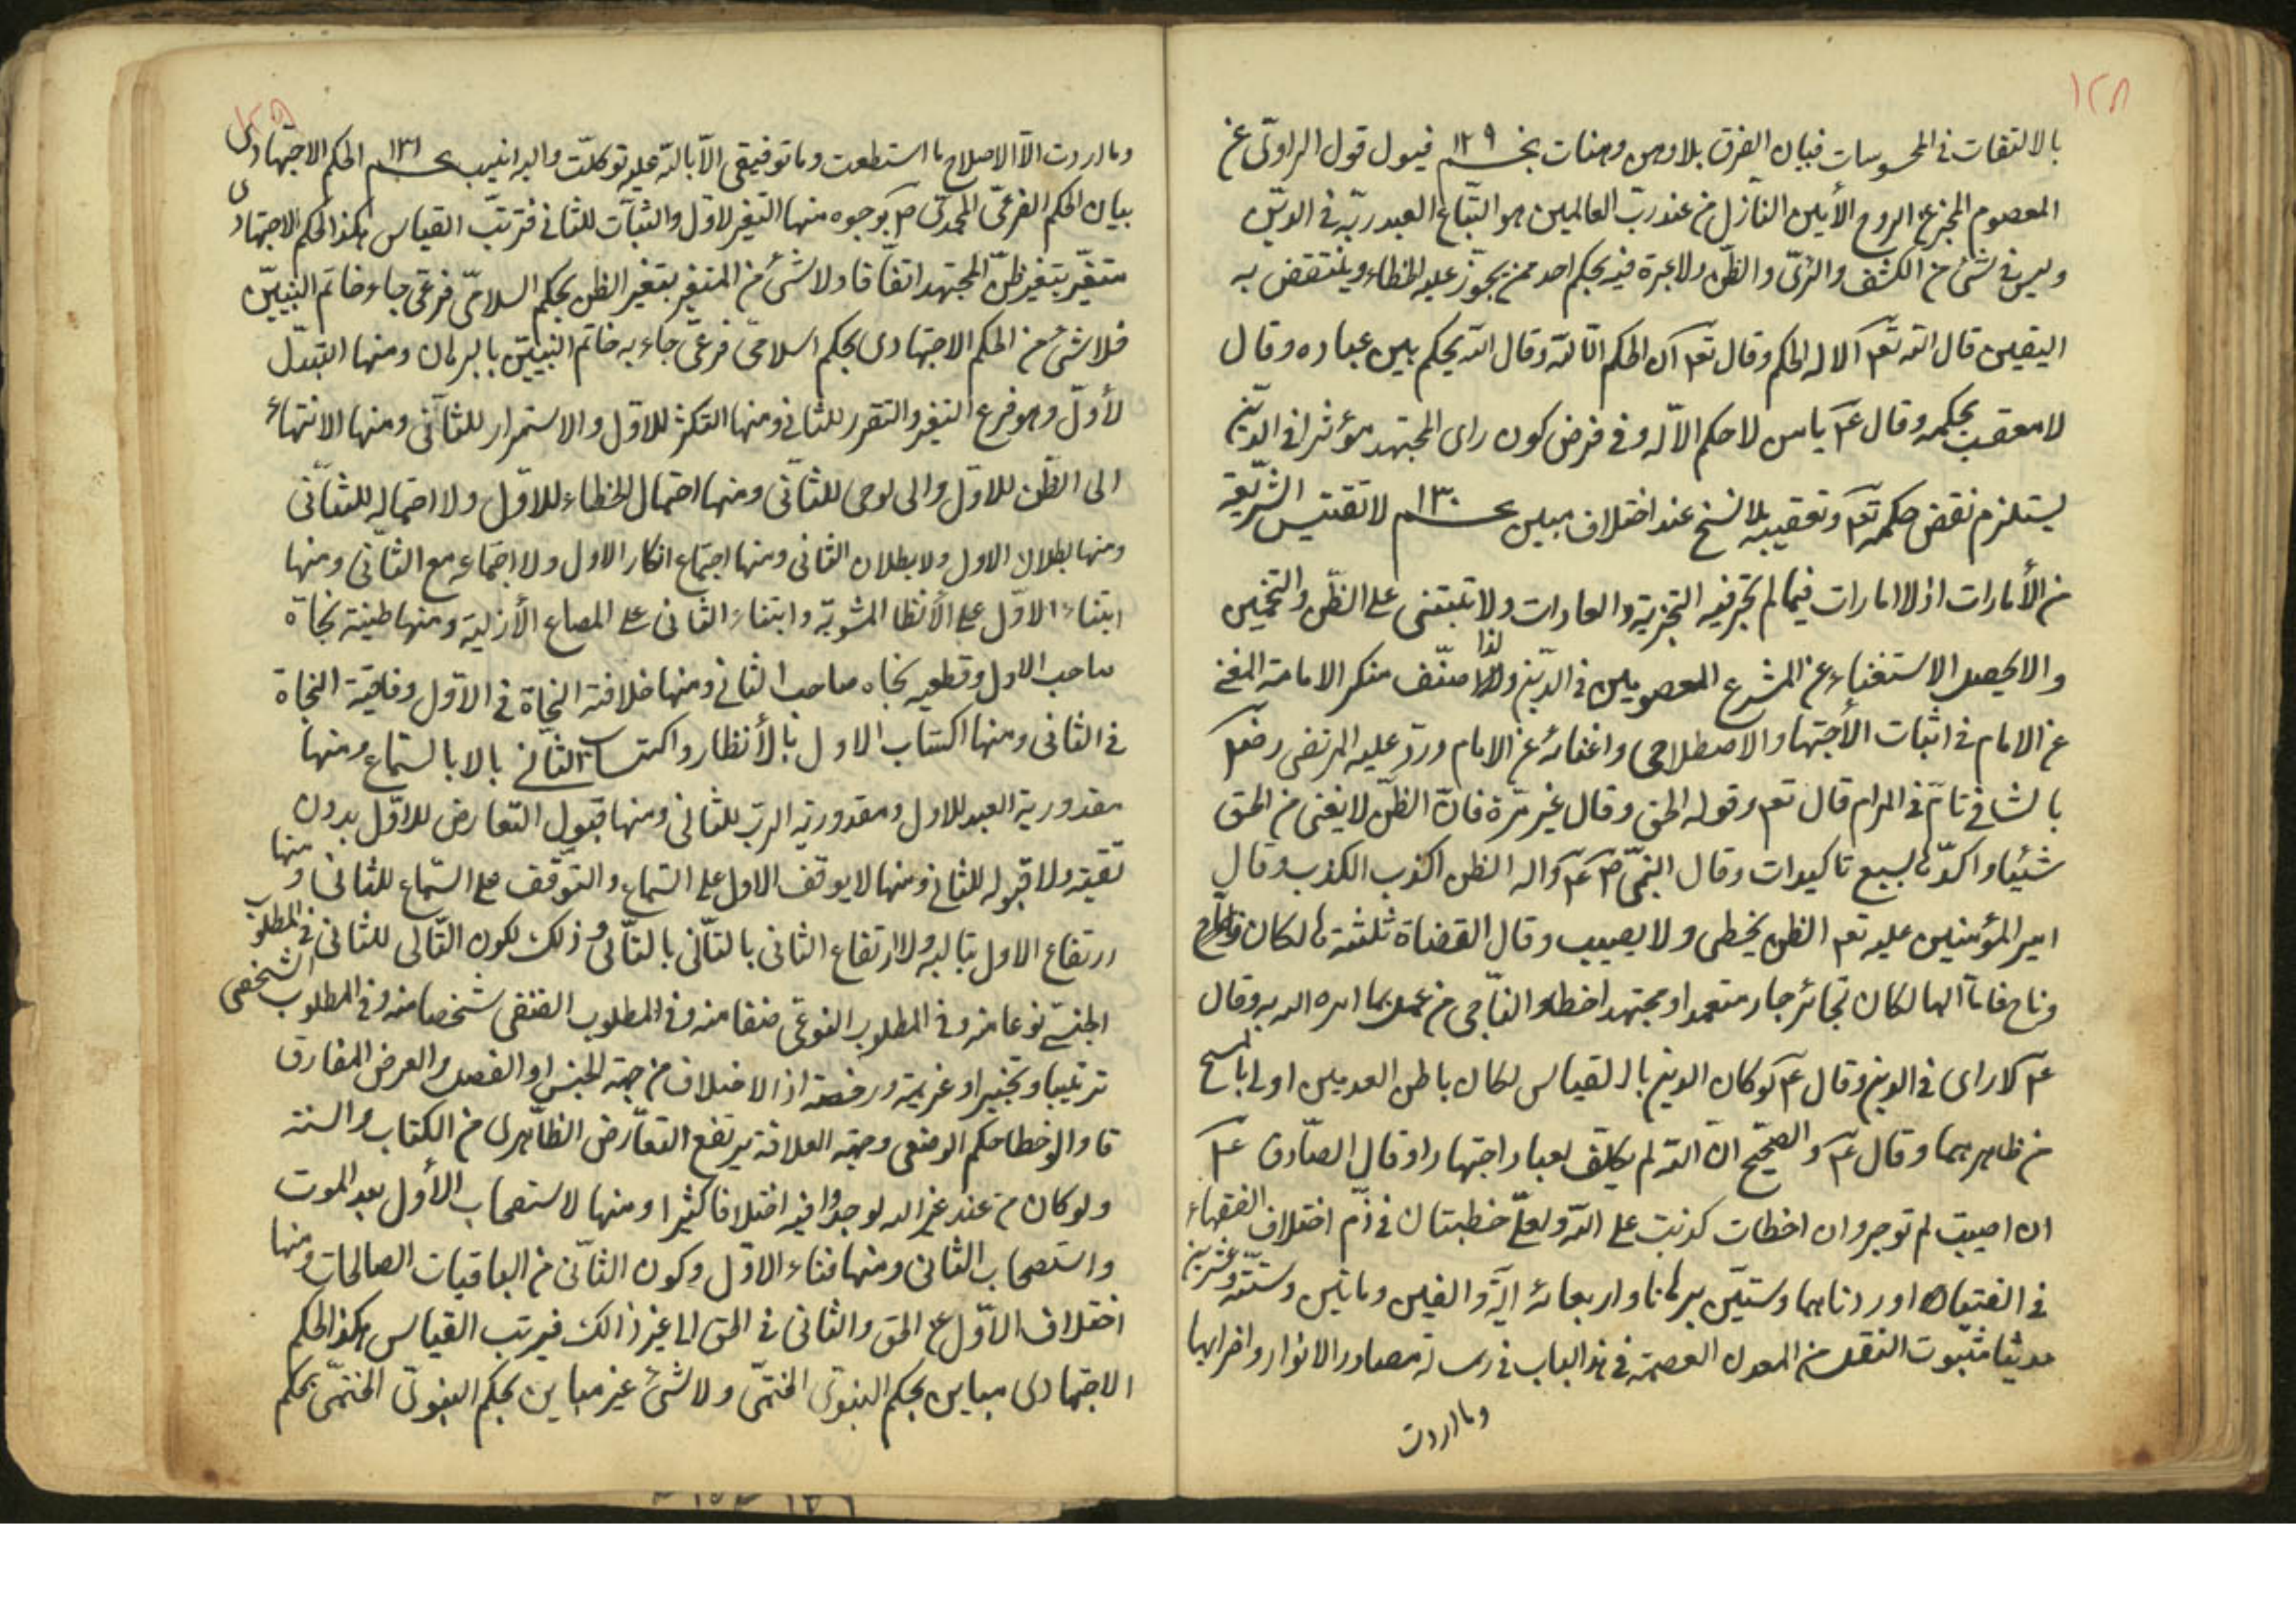 ١٢٨
بالالتفات فى المحسوسات فبان الفرق بلا وهن وهنات نجم ١٢٩ قبول قول الراوى عن
المعصوم المخبر عن الروح الأمين النازل من عند رب العالمين هو اتباع العبد ربه فى الدين
وليس فى شئ من الكشف والرأى والظن ولا عبرة فيه بحكم احد ممن يجوز عليه الخطاء وينتقض به
اليقين قال الله تعم الا له الحكم وقال تعم ان الحكم الا لله وقال الله يحكم بين عباده وقال
لا معقب لحكمه وقال ياس لا حكم الا له وفى فرض كون راى المجتهد مؤثرا فى الدين
يستلزم نقض حكمه تعم وتعقيبه بلا نسخ عند اختلاف مبين نجم ١٣٠ لا تقتبس الشريعة
من الأمارات اذ لا امارات فيما لم تجر فيه التجربة والعادات ولا تبتنى على الظن والتخمين
والا لحصل الاستغناء عن المشرع المعصومين فى الدين ولذا صنف منكر الامامة المغنى
عن الامام فى اثبات الأجتهاد الاصطلاحى واغنائه عن الامام ورد عليه المرتضى رفعه
بالشافى تام فى المرام قال تعم وقوله الحق وقال غير مرة فان الظن لا يغنى من الحق
شيئا واكده بسبع تاكيدات وقال النبى ص واله الظن اكذب الكذب وقال
امير المؤمنين عليه تعم الظن يخطى ولا يصيب وقال القضاة ثلثة هالكان
وناج فاما الهالكان فجائر جار متعمدا ومجتهد اخطاء والناجى من عمل بما امره الله به وقال
لا راى فى الدين وقال لو كان الدين بالقياس لكان باطن القدمين اولى بالمسح
من ظاهرهما وقال والصحيح ان الله لم يكلف لعباد اجتهادا وقال الصادق
ان اصبت لم توجر وان اخطات كذبت على الله ولعلى خطبتان فى ذم اختلاف الفقهاء
فى الفتيا اوردناهما وستين برهانا واربعمائه اية والفين ومائتين وستة وعشرين
حديثا مثبوت النقل من المعدن العصمة فى هذا الباب فى رسالة مصادر الانوار واخرابها
وما اردت
وما اردت الا الاصلاح ما استطعت وما توفيقى الا بالله عليه توكلت واليه انيب نجم ١٣١ الحكم الاجتهادى
بيان الحكم الفرعى المحمدى ص بوجوه منها التغير لاول والثبات للثانى فترتب القياس هكذا الحكم الاجتهادى
متغير بتغير ظن المجتهد اتفاقا ولا شئ من المتغير بتغير الظن بحكم اسلامى فرعى جاء خاتم النبيين
فلا شئ من الحكم الاجتهادى بحكم اسلامى فرعى جاء به خاتم النبيين بالبرهان ومنها التبدل
لأول وهو فرع التغير والتقرر للثانى ومنها التكثر للاول والاستمرار للثانى ومنها الانتهاء
الى الظن للاول والى لوحى للثانى ومنها احتمال الخطاء للاول ولا احتماله للثانى
ومنها بطلان الاول ولا بطلان الثانى ومنها اجتماع انكار الاول ولا اجتماعه مع الثانى ومنها
ابتناء الاول على الأنظار المشوبة وابتناء الثانى على المصالح الأزلية ومنها ظنية نجاة
صاحب الاول وقطعيه نجاه صاحب الثانى ومنها خلافة النجاة فى الاول وفاقية النجاة
فى الثانى ومنها اكتساب الاول بالأنظار واكتساب الثانى بالا بالستماع ومنها
مقدورية العبد للاول ومقدورية الرب للثانى ومنها قبول التعارض للاول بدون
تقية ولا قبوله للثانى ومنها لا يوقف الاول على السماع والتوقف على السماع للثانى ومنها
ارتفاع الاول بتاليه ولا ارتفاع الثانى بالثانى بالتالى وذلك لكون التالى للثانى فى المطلوب
الجنسى نوعا منه وفى المطلوب النوعى صنفا منه وفى المطلوب الصنفى شخصا منه وفى المطلوب الشخصى
ترتيبا وتخييرا وعزيمة ورخصة اذ الاختلاف من جهة الجنس او الفصل والعرض المفارق
خطا حكم الوضعى وجهة العلاقة يرتفع التعارض الظاهرى من الكتاب والسنة
ولو كان من عند غير الله لوجدوا فيه اختلافا كثيرا ومنها لا ستصحاب الأول بعد الموت
واستصحاب الثانى ومنها فناء الاول وكون الثانى من الباقيات الصالحات ومنها
اختلاف الاول عن الحق والثانى فى الحق الى غير ذالك فيرتب القياس هكذا الحكم
الاجتهادى مباين بحكم النبوى الختمى ولا شئ غير مباين بحكم النبوى الختمى بحكم